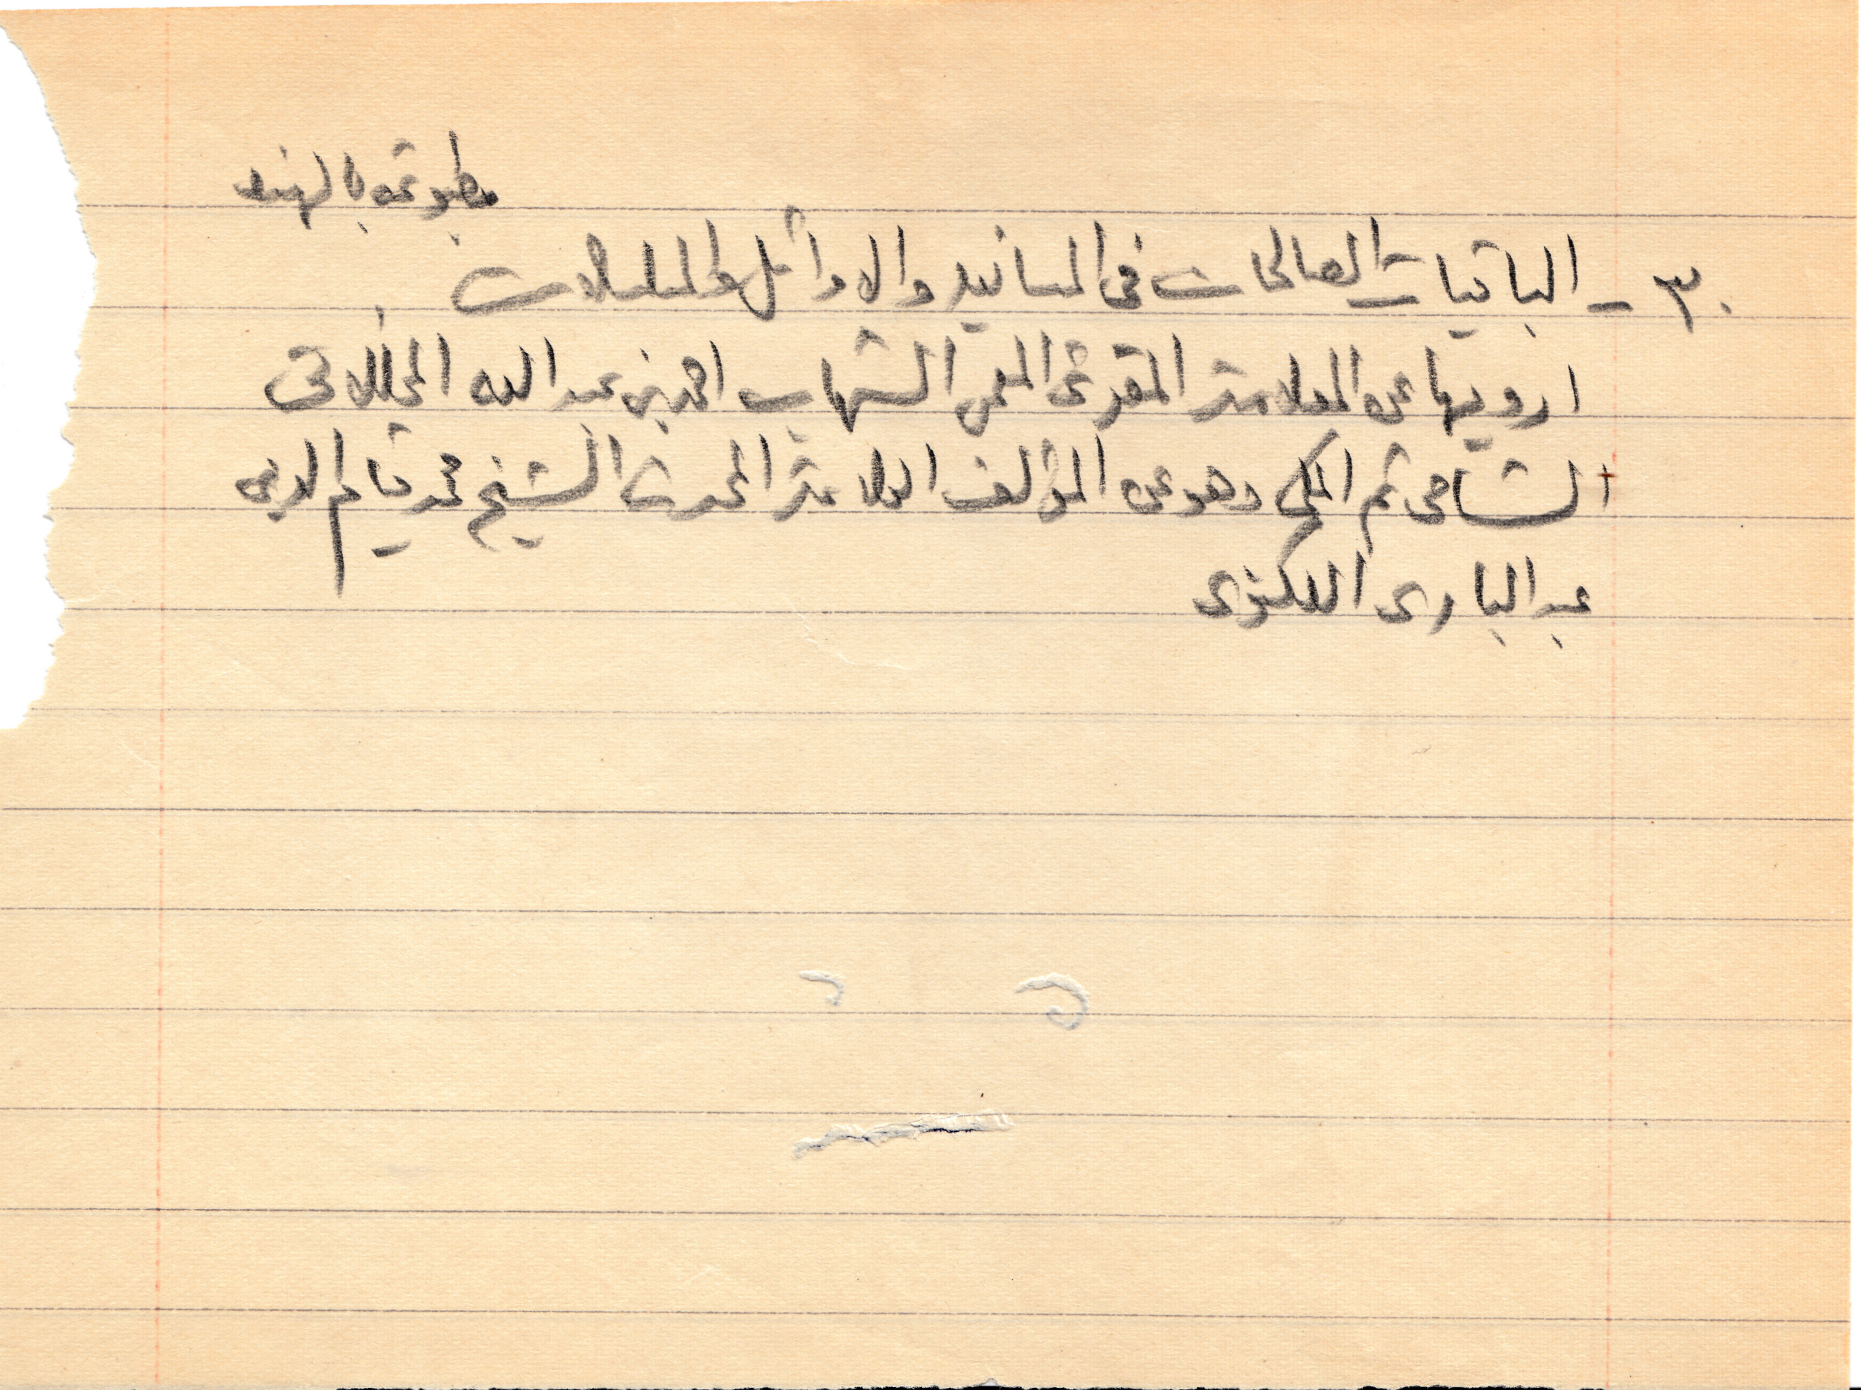 مطبوعة بالهند
٣٠ - الباقيات الصالحات في المسانيد والاوائل والمسلسلات
ارويها عن العلامة المقرئ المعمر الشهاب احمد بن عبد الله المخللاتى
الشامى ثم المكي وهو عن المؤلف العلامة المحدث الشيخ محمد قيام الدين
عبد البارى اللكنوى